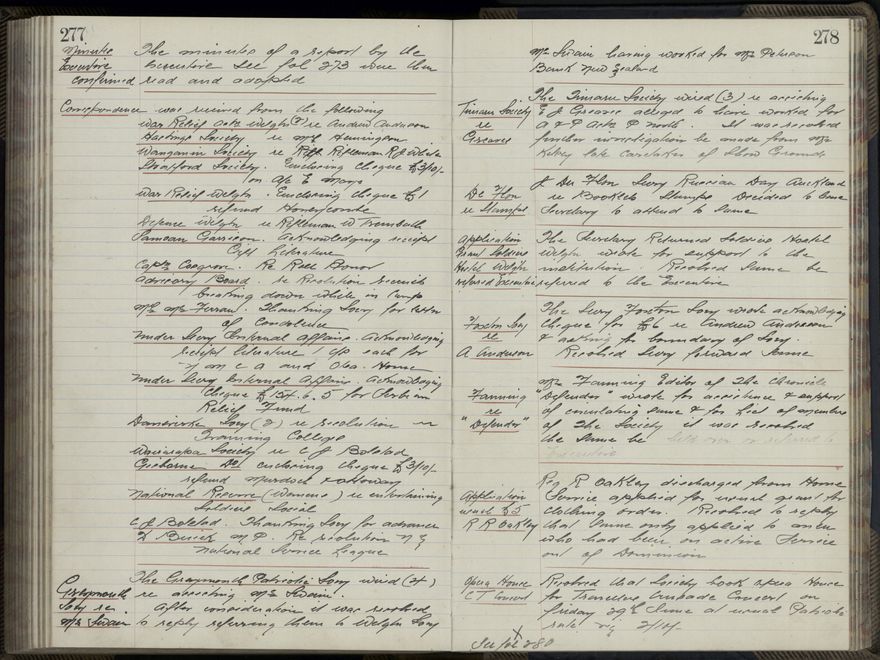 277
Minutes
Executive
confirmed
The minutes of a report by the
Executive see fol 273 were then
read and adopted
Correspondence was received from the following
War Relief Assn Welgtn (?) re Andrew Anderson
Hastings Society re Mrs
Wanganui Society re Rifleman R J White
Stratford Society. Enclosing cheque £3/10/-
on a/c E Mays
War Relief Welgtn. Enclosing cheque £1
refund Honeycombe
Defence Welgtn re Rifleman W
Samoan Garrison. Acknowledging receipt
Gift Literature
Captn Cosgrove. Re Roll Honor
Advisory Board. re Resolution recruits
breaking down while in Camp
Mr & Mrs Ferrari. Thanking Socy for letter
of Condolence
Under Secry Internal Affairs. Acknowledging
receipt literature 1 c/s each for
Y M C A and Oba. Home
Under Secry Internal Affairs Acknowledging
Cheque £154.6.5 for Serbian
Relief Fund
Dannevirke Socy (2) re resolution re
Training College
Wairarapa Society re C J Bolstad
Gisborne Do enclosing cheque £3/10/-
refund Murdock
National Reserve (Womens) re entertaining
Soldiers Social
C J Bolstad. Thanking Socy for advance
D Buick M.P. Re resolution N Z
National Service League
Greymouth
Socy re.
Mrs Swain
The Greymouth Patriotic Socy wired (4)
re assisting Mrs Swain.
After consideration it was resolved
to reply referring them to Welgtn Socy
278
Mr Swain having worked for Mr Paterson
Bank New Zealand
Timaru Society
re
Greaves
The Timaru Society wired (3) re assisting
E J Greaves alleged to have worked for
A & P Assn P North. It was resolved
further investigation be made from Mr
late caretaker of Show Grounds
De Flon
re Stamps
J Du Flon Secry Russian Day Auckland
re Booklets Stamps Decided to leave
Secretary to attend to same
Application
Grant Soldiers
Hostel Welgtn
referred Executive
The Secretary Returned Soldiers Hostel
Welgtn wrote for support to the
institution. Resolved same be
referred to the Executive
Foxton Socy
re
A Anderson
The Secry Foxton Socy wrote acknowledging
cheque for £6 re Andrew Anderson
& asking for boundary of Socy.
Resolved Secry forward same
Fanning
re
"Defender"
Mr Fanning Editor of The Chronicle
"Defender" wrote for assistance & support
of circulating same & for list of members
of The Society it was resolved
the same be held over or referred to
Executive
Application
usual £5
R R Oakley
Reg R Oakley discharged from Home
Service applied for usual grant for
clothing order. Resolved to reply
that same only applied to men
who had been on active service
out of Dominion
Opera House
C T Concert
Resolved that Society book Opera House
for Travellers Crusade Concert on
Friday 29th June at usual Patriotic
rate viz 2/10/-
See fol 280